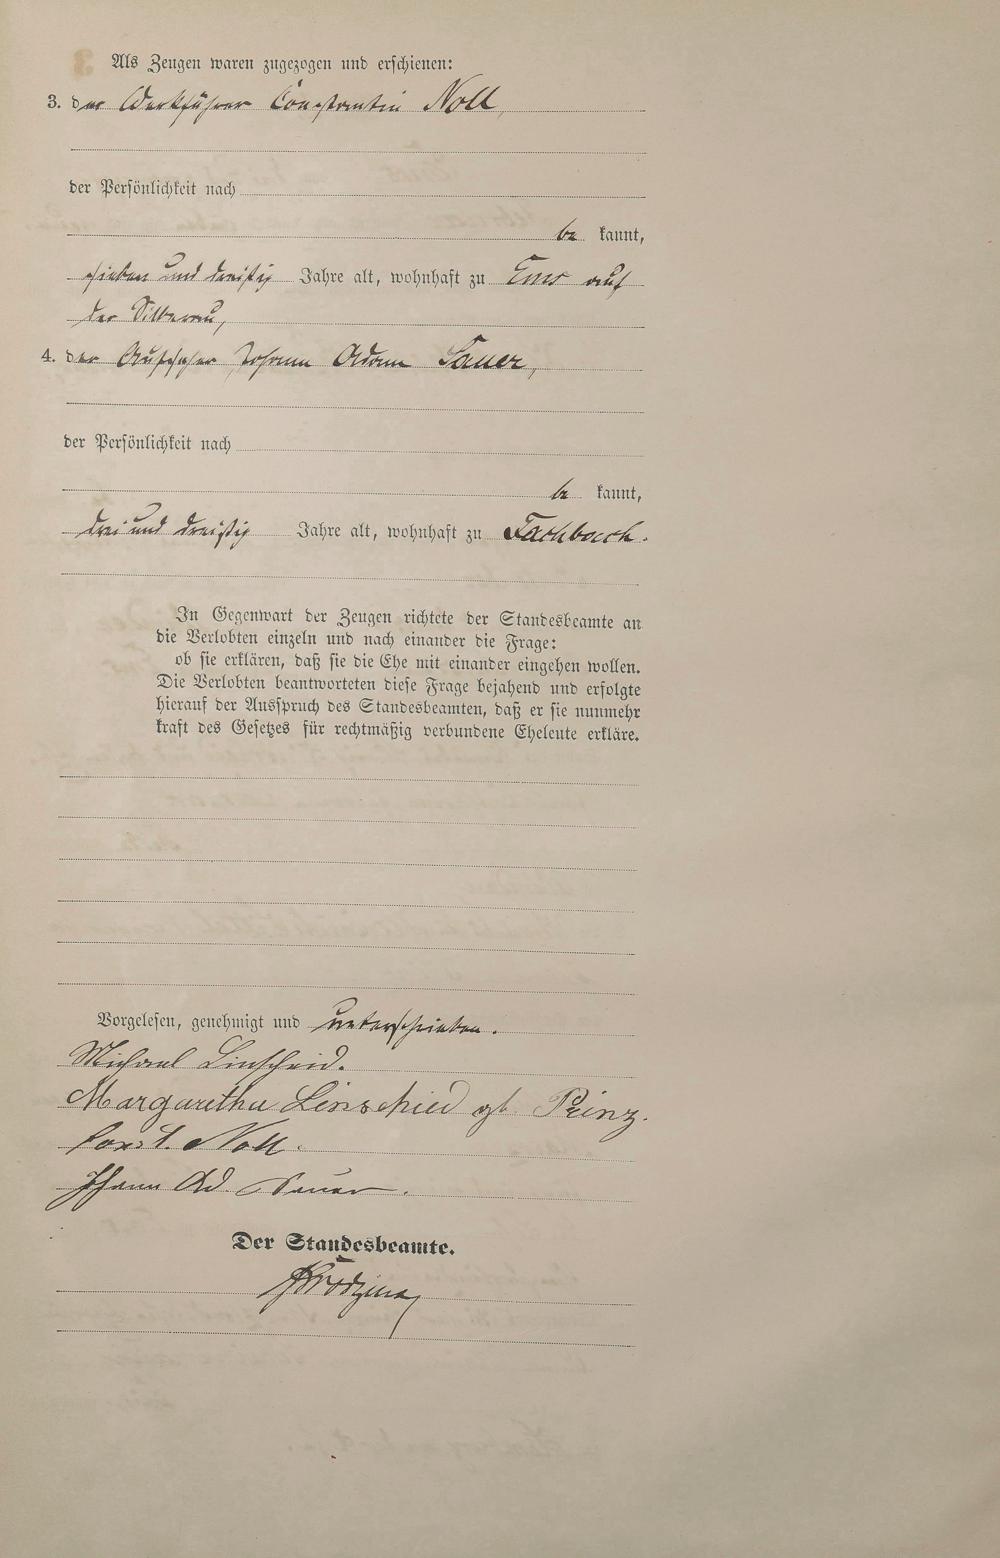 Als Zeugen waren zugezogen und erschienen:
3. der Werkführer Constantin Noll,
der Persönlichkeit nach
be kannt,
sieben und dreißig Jahre alt, wohnhaft zu Ems auf
der Silberau,
4. der Aufseher Johann Adam Sauer,
der Persönlichkeit nach
be kannt,
drei und dreißig Jahre alt, wohnhaft zu Fachbach.
In Gegenwart der Zeugen richtete der Standesbeamte an
die Verlobten einzeln und nach einander die Frage:
ob sie erklären, daß sie die Ehe mit einander eingehen wollen.
Die Verlobten beantworteten diese Frage bejahend und erfolgte
hierauf der Ausspruch des Standesbeamten, daß er sie nunmehr
kraft des Gesetzes für rechtmäßig verbundene Eheleute erkläre.
Vorgelesen, genehmigt und unterschrieben.
Michael Linscheid.
Margaretha Linschied gb. Prinz.
Const. Noll.
Johann Ad. Sauer.
Der Standesbeamte.